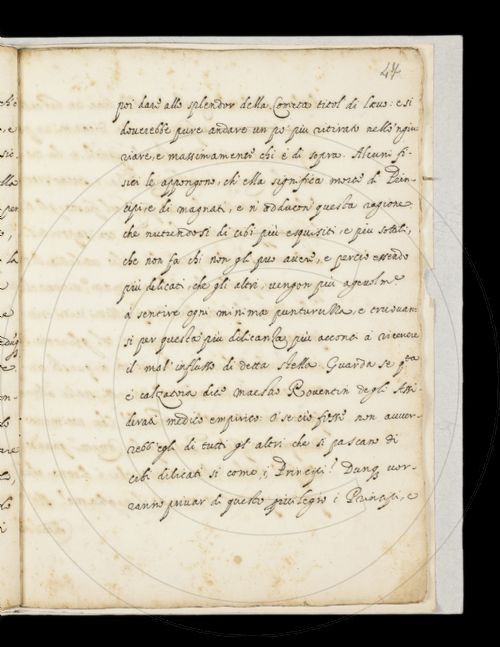 47
poi dare allo splendor della Cometa titol di Lævo: e si
doverebbe pure andare un pò più ritirato nello 'ngiu
riare, e massimamente chi è di sopra. Alcuni fi-
sici le appongono, ch'ella significa morte di Prin-
cipi, e di magnati, e n'adducon questa ragione
che nutrendosi di cibi più esquisiti, e più sottili,
che non fa chi non gli può avere, e perciò essendo
più delicati, che gli altri, vengon più agevolm.e
a sentire ogni minima punturuzza, e truovan-
si per questa più delicatezza più acconti à ricevere
il mal'influsso di detta stella. Guarda se q.ta
è calzatoia dice maestro Roventin degli Assi-
derati medico empirico. O se ciò fosse non avver-
rebb'egli di tutti gl'altri che si pascano di
cibi dilicati si come i Principi? Dunq. vor-
ranno privar di questo privilegio i Principi, e